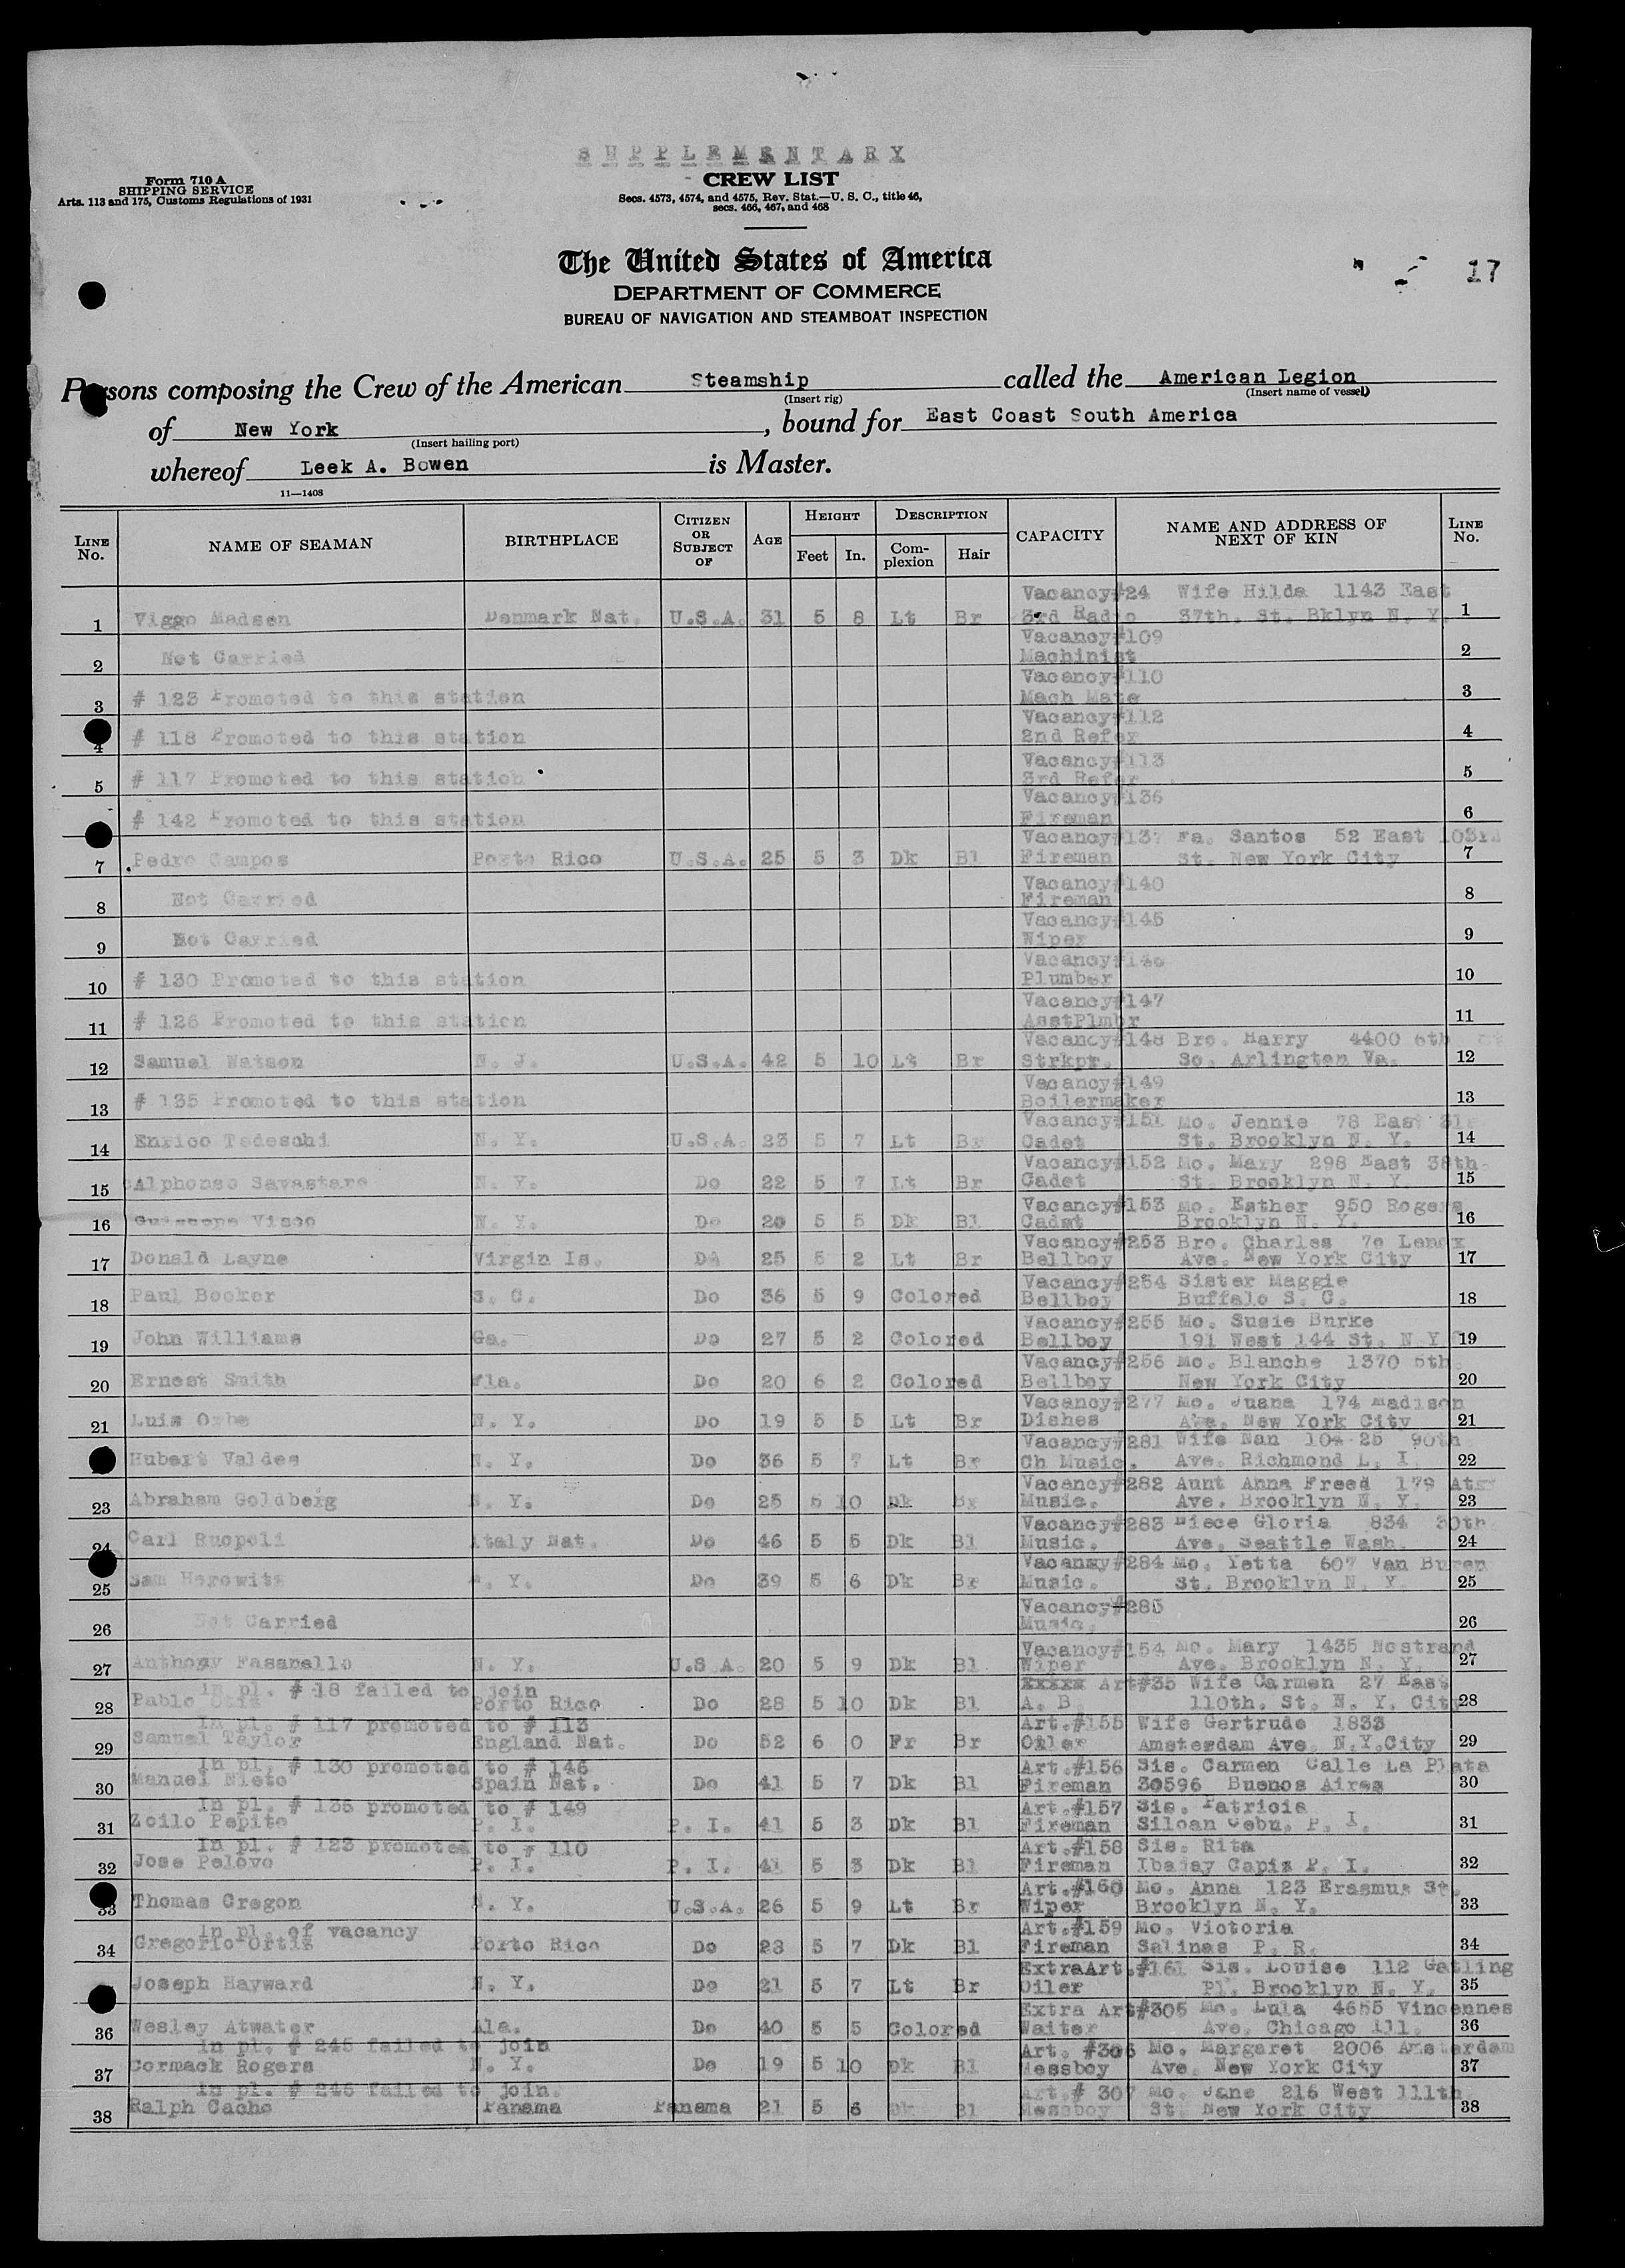 SUPPLEMENTARY
Form 710 A
SHIPPING SERVICE
Arts. 113 and 175, Customs Regulations of 1931
CREW LIST
Secs. 4573, 4574, and 4575, Rev. Stat.—U. S. C., title 46,
secs. 466, 467, and 468
The United States of America
DEPARTMENT OF COMMERCE
BUREAU OF NAVIGATION AND STEAMBOAT INSPECTION
17
Persons composing the Crew of the American Steamship called the American Legion
(Insert rig) (Insert name of vessel)
of New York, bound for East Coast South America
(Insert hailing port)
whereof Leek A. Bowen is Master.
11—1408
LINE No. NAME OF SEAMAN BIRTHPLACE CITIZEN OR SUBJECT OF AGE HEIGHT Feet In. DESCRIPTION Complexion Hair CAPACITY NAME AND ADDRESS OF NEXT OF KIN LINE No.
Vacancy#24 Wife Hilda 1143 East
1 Viggo Madsen Denmark Nat. U.S.A. 31 5 8 Lt Br 3rd Radio 37th. St. Bklyn N. Y. 1
Vacancy#109
2 Not Carried Machinist 2
Vacancy#110
3 # 123 Promoted to this station Mach Mate 3
Vacancy#112
4 # 118 Promoted to this station 2nd Refer 4
Vacancy#113
5 # 117 Promoted to this station 3rd Refer 5
Vacancy#136
# 142 Promoted to this station Fireman 6
Vacancy#137 Fa. Santos 52 East 103rd
7 Pedro Campos Porto Rico U.S.A. 25 5 3 Dk Bl Fireman St. New York City 7
Vacancy#140
8 Not Carried Fireman 8
Vacancy#145
9 Not Carried Wiper 9
Vacancy#146
10 # 130 Promoted to this station Plumber 10
Vacancy#147
11 # 126 Promoted to this station AsstPlmbr 11
Vacancy#148 Bro. Harry 4400 6th St
12 Samuel Watson N. J. U.S.A. 42 5 10 Lt Br Strkpr. So. Arlington Va. 12
Vacancy#149
13 # 135 Promoted to this station Boilermaker 13
Vacancy#151 Mo. Jennie 78 East
14 Enrico Tedeschi N. Y. U.S.A. 23 5 7 Lt Br Cadet St. Brooklyn N. Y. 14
Vacancy#152 Mo. Mary 298 East 38th.
15 Alphonso Savastare N. Y. Do 22 5 7 Lt Br Cadet St. Brooklyn N. Y. 15
Vacancy#153 Mo. Esther 950 Rogers
16 Guiseppe Visco N. Y. Do 20 5 5 Dk Bl Cadet Brooklyn N. Y. 16
Vacancy#253 Bro. Charles 70 Lenox
17 Donald Layne Virgin Is. Do 25 5 2 Lt Br Bellboy Ave. New York City 17
Vacancy#254 Sister Maggie
18 Paul Booker S. C. Do 36 5 9 Colored Bellboy Buffalo S. C. 18
Vacancy#255 Mo. Susie Burke
19 John Williams Ga. Do 27 5 2 Colored Bellboy 191 West 144 St. N Y 19
Vacancy#256 Mo. Blanche 1370 5th.
20 Ernest Smith Fla. Do 20 6 2 Colored Bellboy New York City 20
Vacancy#277 Mo. Juana 174 Madison
21 Luis Orbe N. Y. Do 19 5 5 Lt Br Dishes Ave. New York City 21
Vacancy#281 Wife Nan 104-25 90th
Hubert Valdes N. Y. Do 36 5 7 Lt Br Ch Music. Ave. Richmond L. I. 22
Vacancy#282 Aunt Anna Freed 179
23 Abraham Goldberg N. Y. Do 25 5 10 Dk Br Music. Ave. Brooklyn N. Y. 23
Vacancy#283 Niece Gloria 834 30th
24 Carl Ruopoli Italy Nat. Do 46 5 5 Dk Bl Music. Ave. Seattle Wash. 24
Vacancy#284 Mo. Yetta 607 Van Buren
25 Sam Horowitz N. Y. Do 39 5 6 Dk Br Music. St. Brooklyn N. Y. 25
Vacancy#285
26 Not Carried Music. 26
Vacancy#154 Mo. Mary 1435 Nostrand
27 Anthony Fasanello N. Y. U.S.A. 20 5 9 Dk Bl Wiper Ave. Brooklyn N. Y. 27
In pl. # 18 failed to join xxxxx Art#35 Wife Carmen 27 East
28 Pablo Porto Rico Do 28 5 10 Dk Bl A. B. 110th. St. N. Y. City 28
In pl. # 117 promoted to # 113 Art.#155 Wife Gertrude 1833
29 Samuel Taylor England Nat. Do 52 6 0 Fr Br Oiler Amsterdam Ave. N.Y.City 29
In pl. # 130 promoted to # 146 Art.#156 Sis. Carmen Calle La Plata
30 Manuel Nieto Spain Nat. Do 41 5 7 Dk Bl Fireman 30596 Buenos Aires 30
In pl. # 135 promoted to # 149 Art.#157 Sis. Patricia
31 Zoilo Pepito P. I. P. I. 41 5 3 Dk Bl Fireman Siloan Cebu, P. I. 31
In pl. # 123 promoted to # 110 Art.#158 Sis. Rita
32 Jose Pelovo P. I. P. I. 41 5 3 Dk Bl Fireman Ibajay Capiz P. I. 32
Art.#160 Mo. Anna 123 Erasmus St.
33 Thomas Gregon N. Y. U.S.A. 26 5 9 Lt Br Wiper Brooklyn N. Y. 33
In pl. of vacancy Art.#159 Mo. Victoria
34 Gregorio Ortiz Porto Rico Do 23 5 7 Dk Bl Fireman Salinas P. R. 34
ExtraArt.#161 Sis. Louise 112 Gatling
Joseph Hayward N. Y. Do 21 5 7 Lt Br Oiler Pl. Brooklyn N. Y. 35
Extra Art#305 Mo. Lula 4655 Vincennes
36 Wesley Atwater Ala. Do 40 5 5 Colored Waiter Ave. Chicago Ill. 36
In pl. # 245 failed to join Art. #306 Mo. Margaret 2006 Amsterdam
37 Cormack Rogers N. Y. Do 19 5 10 Dk Bl Messboy Ave. New York City 37
In pl. # 246 failed to join. Art.# 307 Mo. Jane 216 West 111th
38 Ralph Cacho Panama Panama 21 5 6 Dk Bl Messboy St. New York City 38